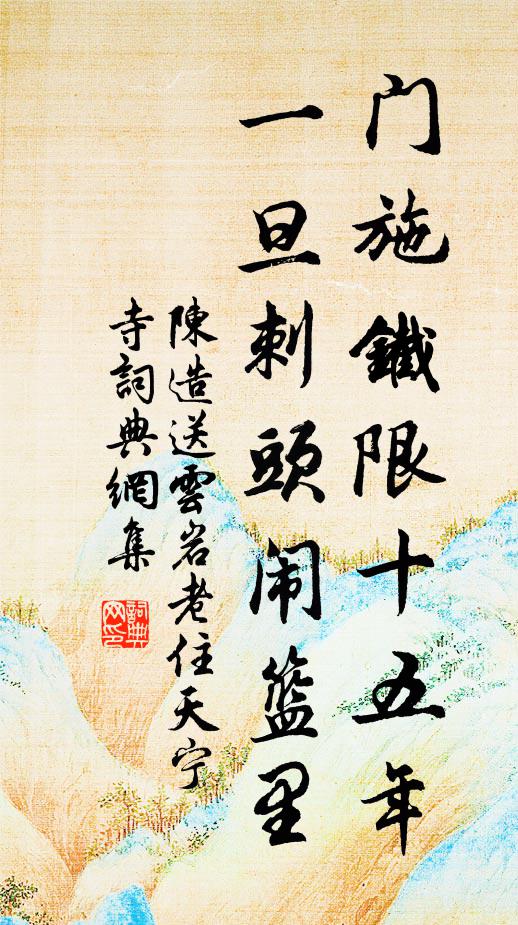 门施鐵限十五年
一旦刺頭闹籃里
陳造送雲岩老住天宁
寺詞典網集
詞典网印